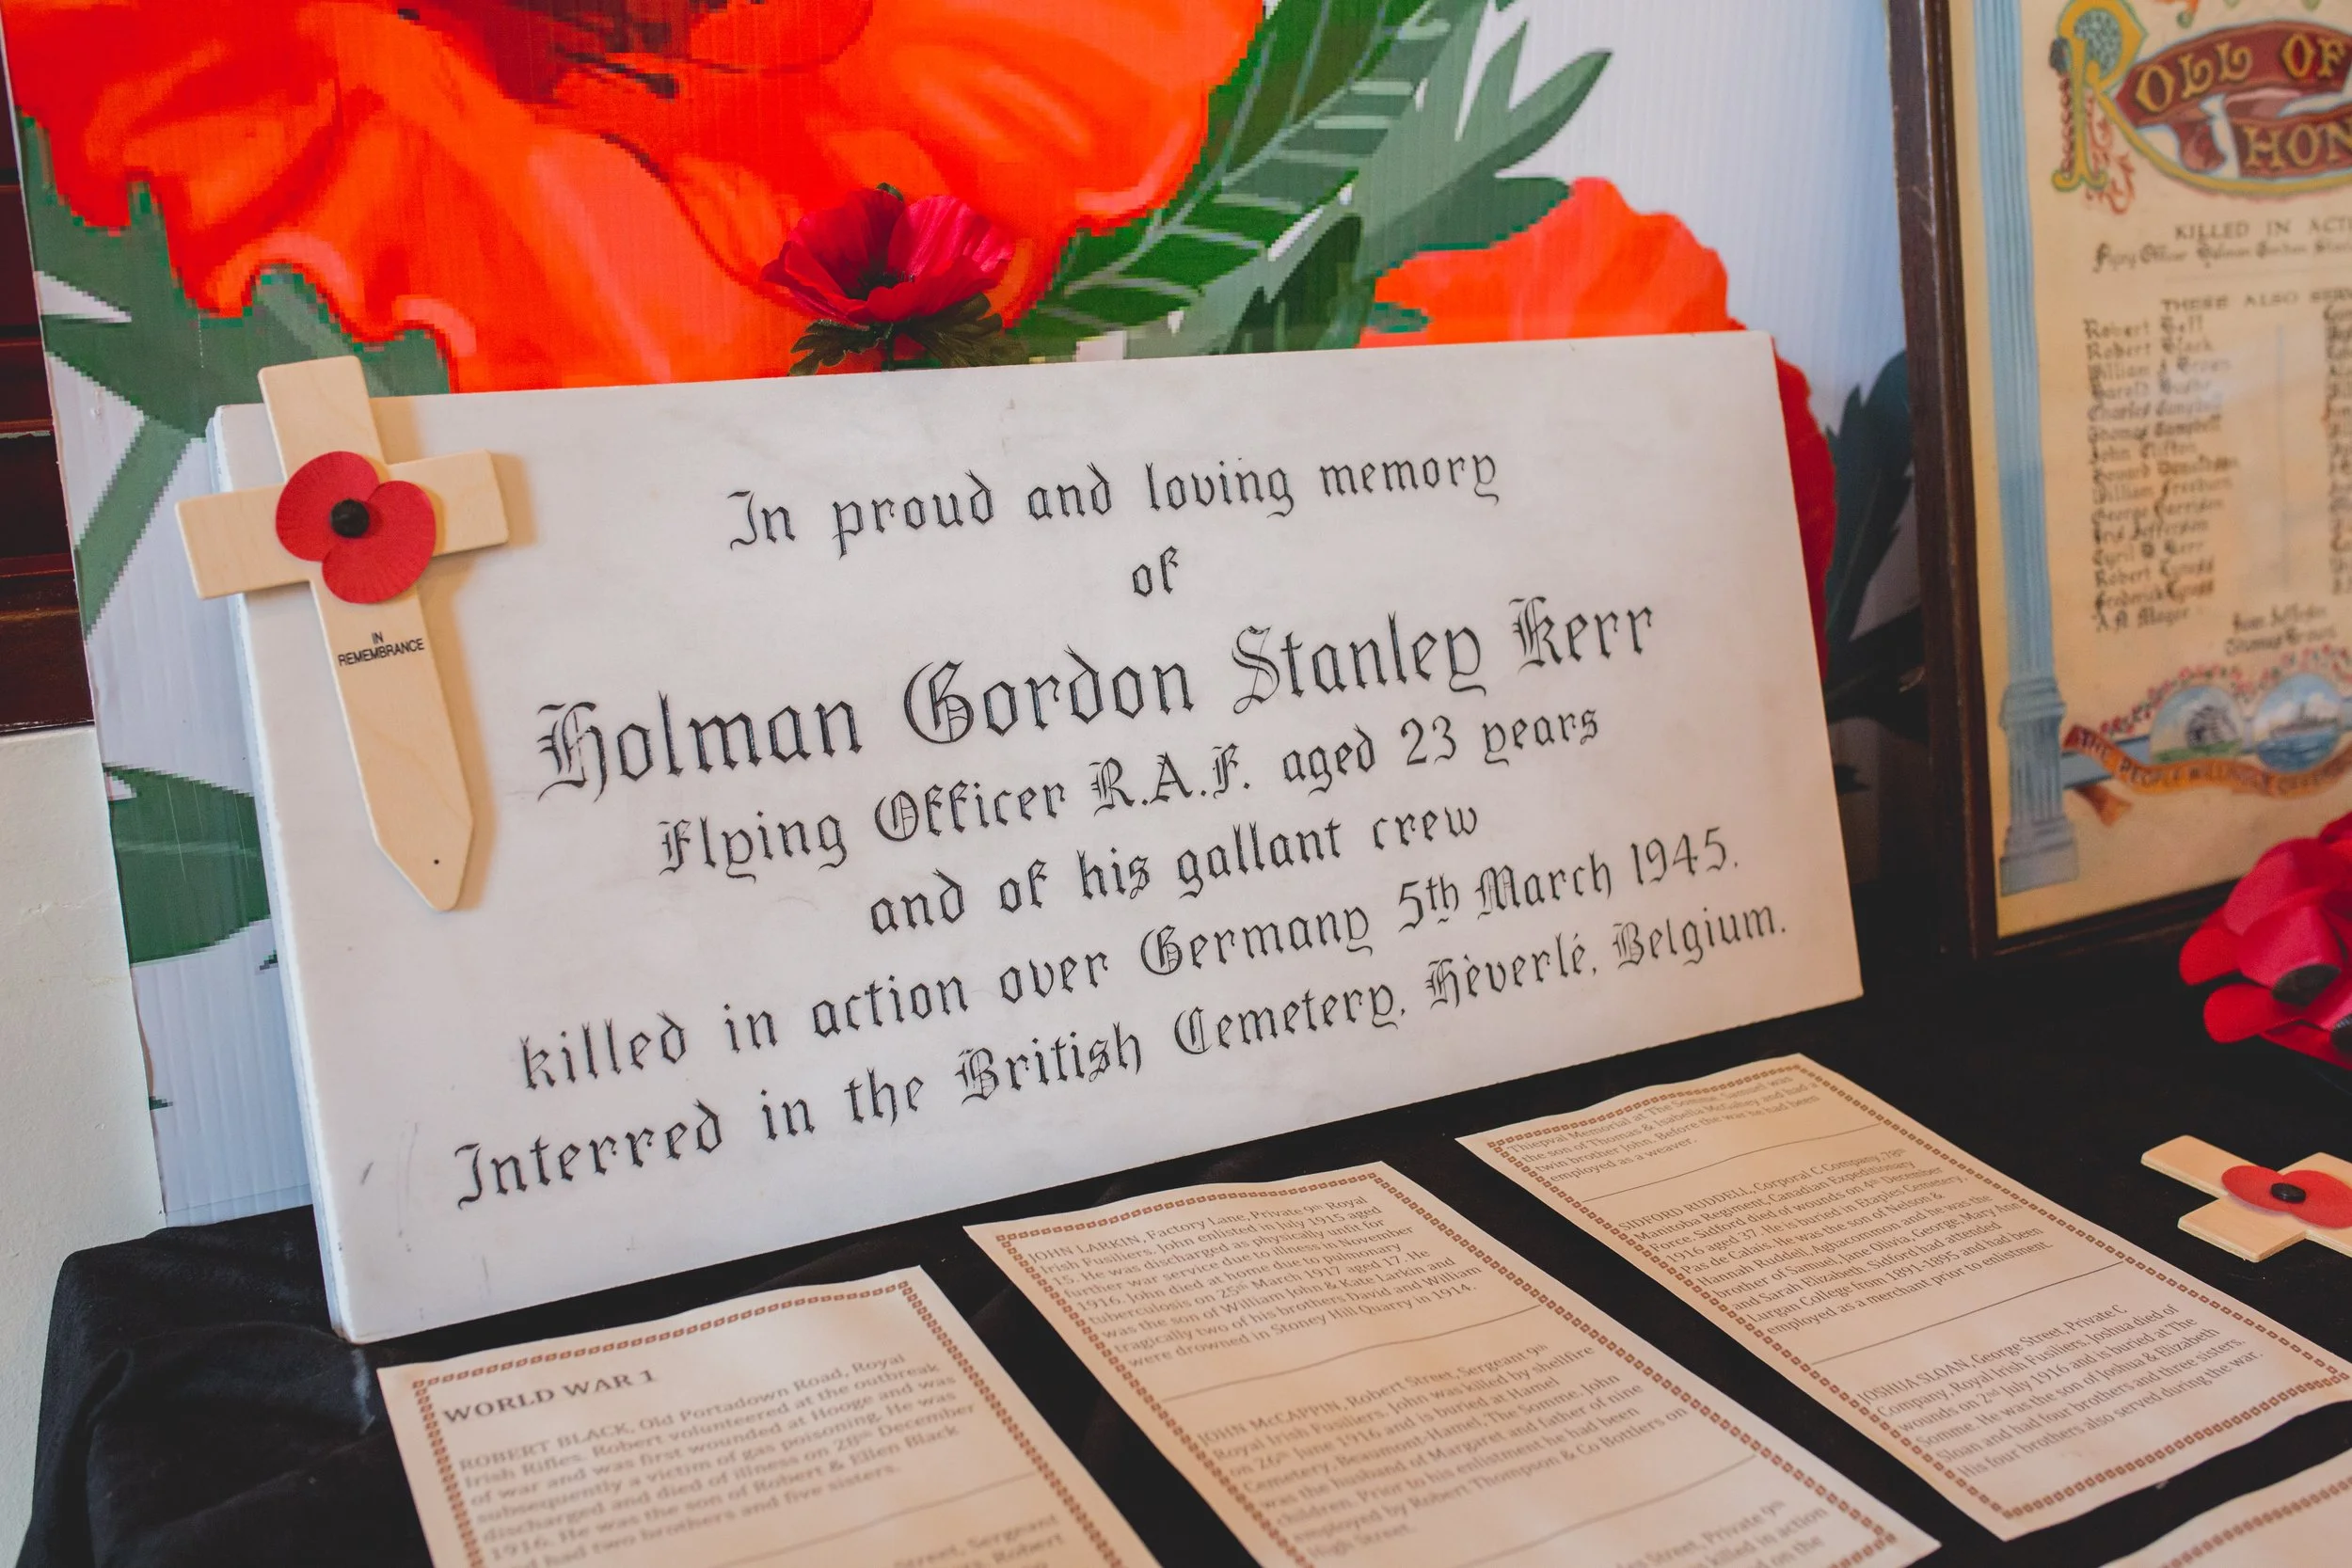 In proud and loving memory
of
Holman Gordon Stanley Kerr
Flying Officer R.A.F. aged 23 years
and of his gallant crew
killed in action over Germany 5th March 1945.
Interred in the British Cemetery, Hèverlé, Belgium.
IN
REMEMBRANCE
ROLL OF
HON
KILLED IN ACTI
Flying Officer Holman Gordon Stan
THESE ALSO SER
Robert Bell
Robert Black
William J.
Charles Campbell
Thomas Campbell
John Clifton
Howard Donaldson
William Freeburn
George Harrison
Jefferson
Cyril Kerr
Robert
Frederick
A.A. Mayor
WORLD WAR 1
ROBERT BLACK, Old Portadown Road, Royal
Irish Rifles. Robert volunteered at the outbreak
of war and was first wounded at Hooge and was
subsequently a victim of gas poisoning. He was
discharged and died of illness on 28th December
1916. He was the son of Robert & Ellen Black
and had two brothers and five sisters.
Street, Sergeant
Robert
JOHN LARKIN, Factory Lane, Private 9th Royal
Irish Fusiliers. John enlisted in July 1915 aged
15. He was discharged as physically unfit for
further war service due to illness in November
1916. John died at home due to pulmonary
tuberculosis on 25th March 1917 aged 17. He
was the son of William John & Kate Larkin and
tragically two of his brothers David and William
were drowned in Stoney Hill Quarry in 1914.
JOHN McCAPPIN, Robert Street, Sergeant 9th
Royal Irish Fusiliers. John was killed by shellfire
on 26th June 1916 and is buried at Hamel
Cemetery, Beaumont-Hamel, The Somme. John
was the husband of Margaret and father of nine
children. Prior to his enlistment he had been
employed by Robert Thompson & Co Bottlers on
High Street.
Street, Private 9th
killed in action
on the
Thiepval Memorial at The Somme. Samuel was
the son of Thomas & Isabella McGahey and had a
twin brother John. Before the war he had been
employed as a weaver.
SIDFORD RUDDELL, Corporal C Company, 78th
Manitoba Regiment, Canadian Expeditionary
Force. Sidford died of wounds on 4th December
1916 aged 37. He is buried in Etaples Cemetery,
Pas de Calais. He was the son of Nelson &
Hannah Ruddell, Aghacommon and he was the
brother of Samuel, Jane Olivia, George, Mary Ann
and Sarah Elizabeth. Sidford had attended
Lurgan College from 1891-1895 and had been
employed as a merchant prior to enlistment.
JOSHUA SLOAN, George Street, Private C
Company, Royal Irish Fusiliers. Joshua died of
wounds on 2nd July 1916 and is buried at The
Somme. He was the son of Joshua & Elizabeth
Sloan and had four brothers and three sisters.
His four brothers also served during the war.